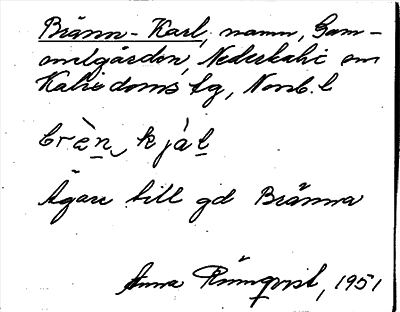 Bränn-Karl, namn, Gam-
melgården, Nederkalix om
Kalix doms tg, Norrb. l
brèn, kjàl
Ägare till gd Bränna
Anna Rönnqvist, 1951